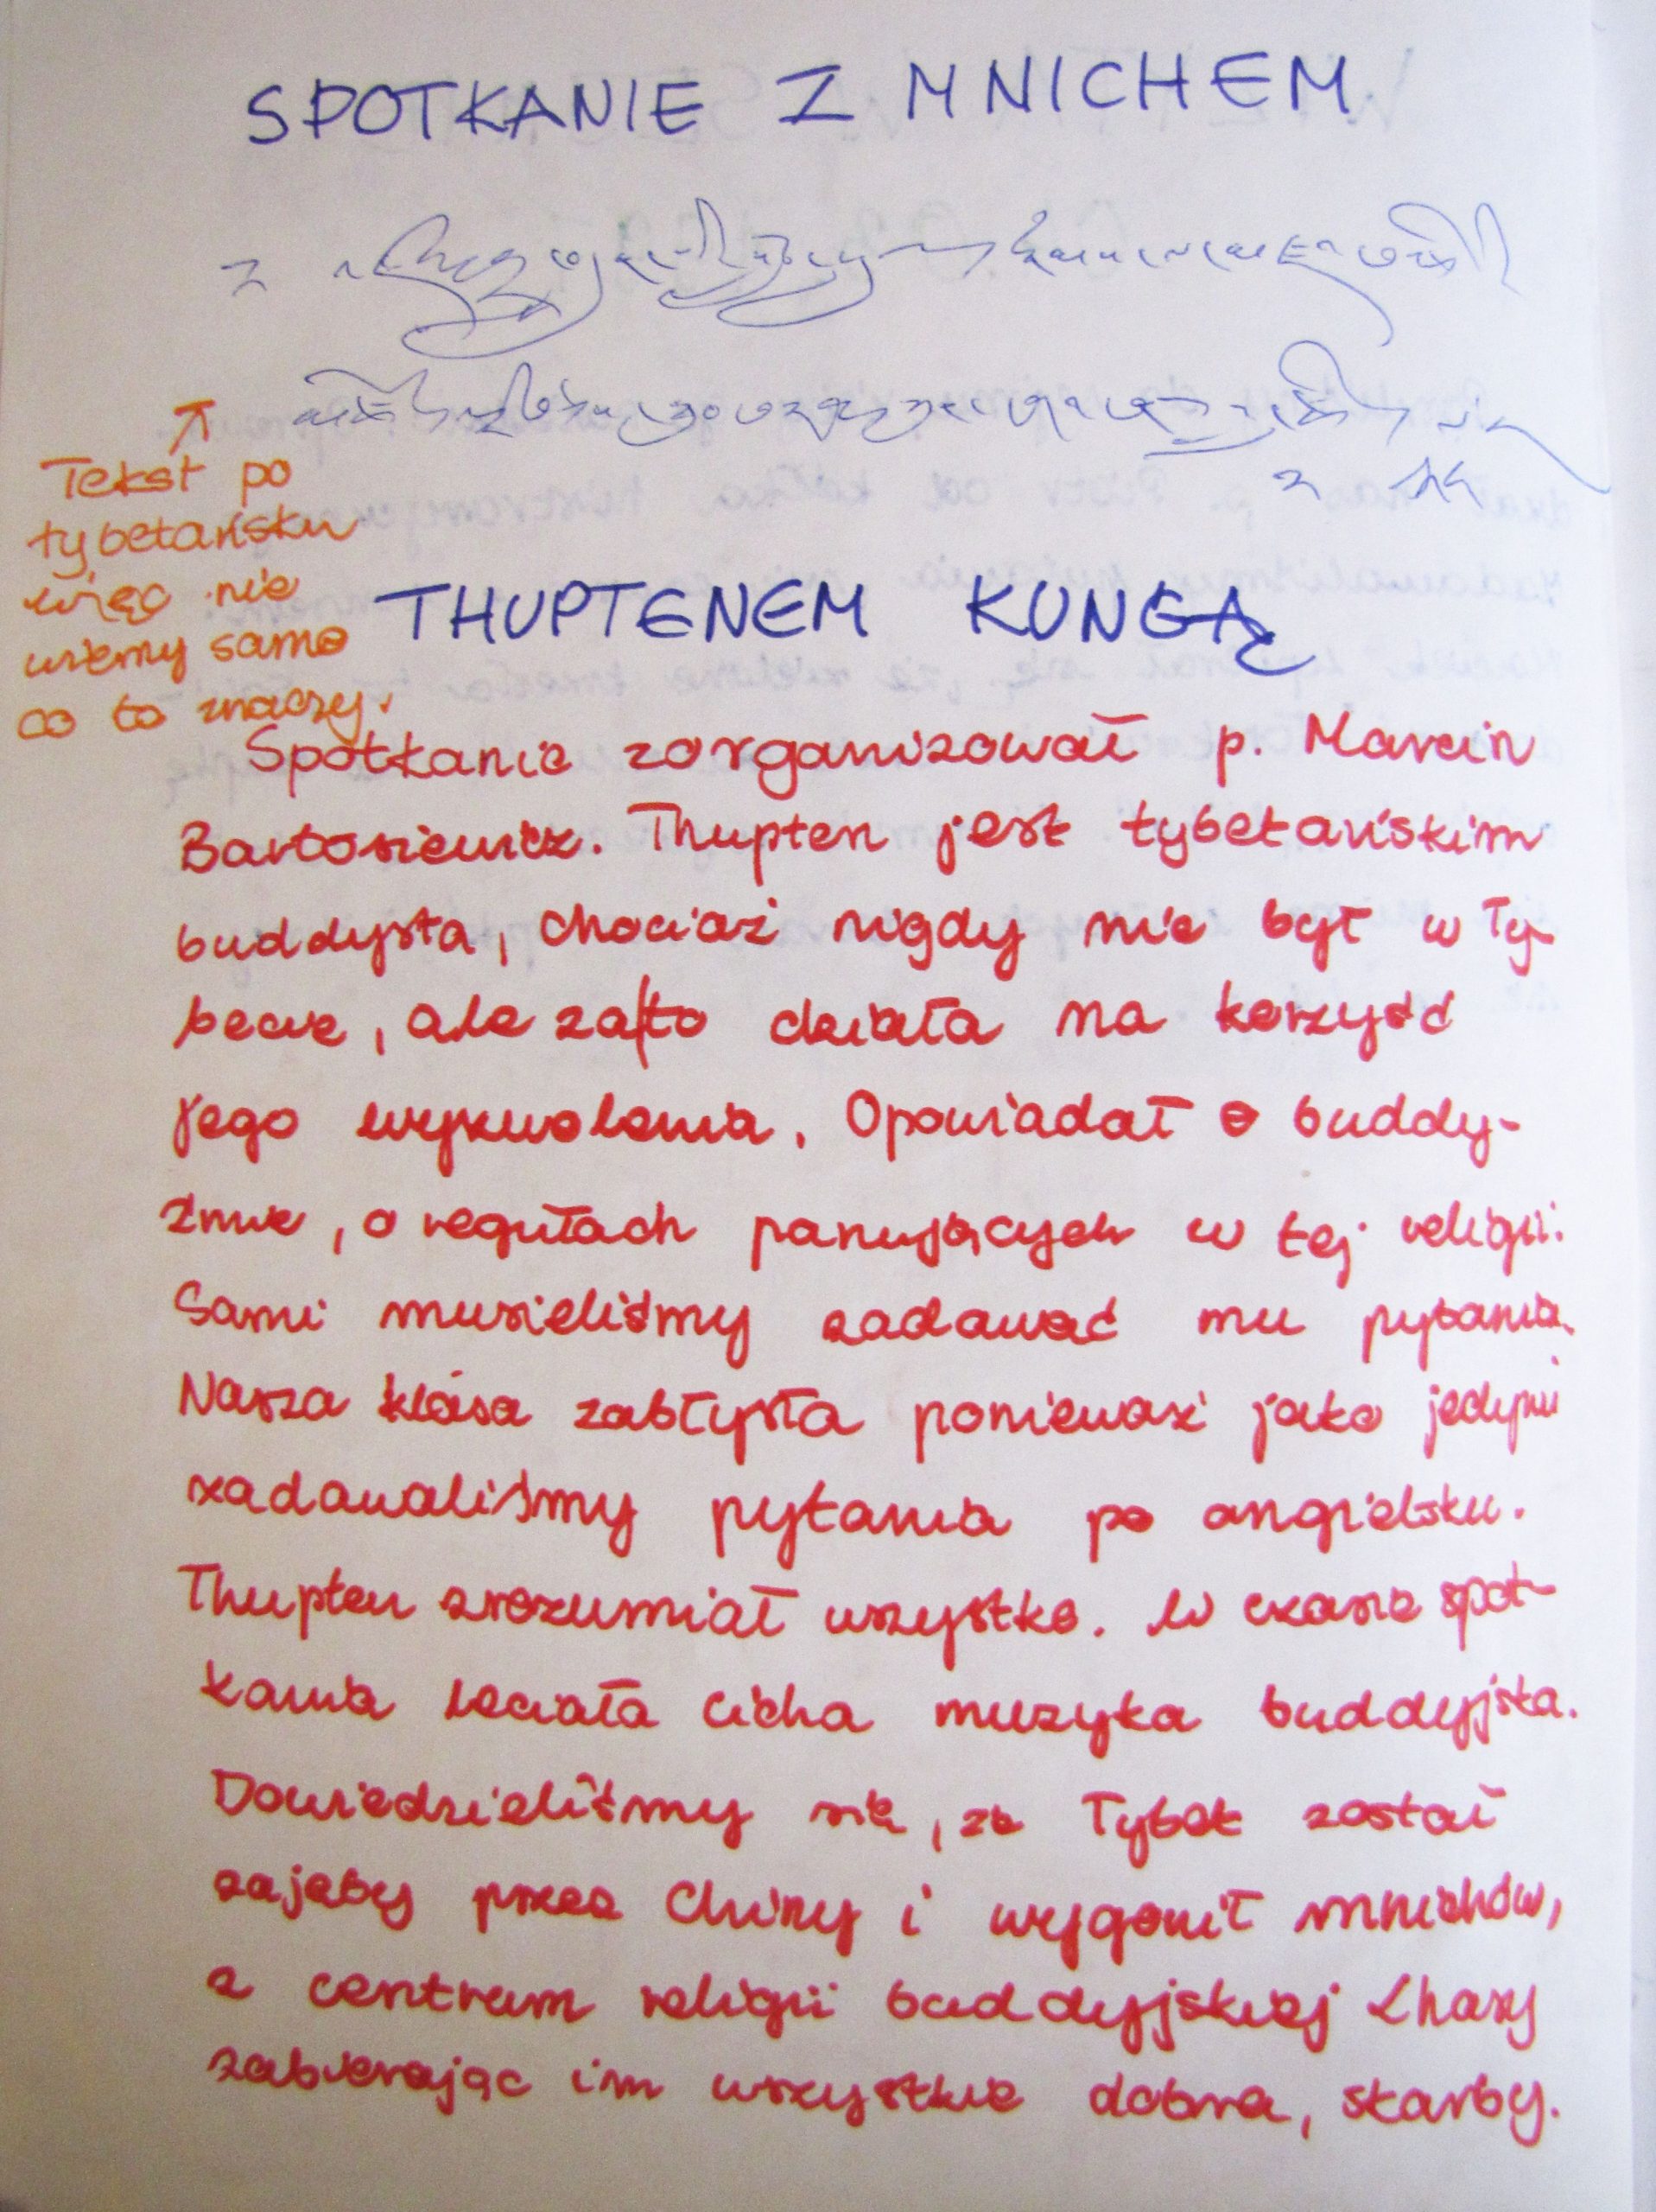 SPOTKANIE Z MNICHEM
Tekst po
tybetańsku
więc nie
wiemy samo
co to znaczy.
THUPTENEM KUNGĄ
Spotkanie zorganizował p. Marcin
Bartosiewicz. Thupten jest tybetańskim
buddysta, chociaż nigdy nie był w Ty-
becie, ale za|to działa na korzyść
jego wyzwolenia. Opowiadał o buddy-
zmie, o regułach panujących w tej religii.
Sami musieliśmy zadawać mu pytania.
Nasza klasa zabłysła ponieważ jako jedyni
zadawaliśmy pytania po angielsku.
Thupten zrozumiał wszystko. W czasie spot-
kania leciała cicha muzyka buddyjska.
Dowiedzieliśmy się, że Tybet został
zajęty przez Chiny i wygonił mnichów,
z centrum religii buddyjskiej Lhasy
zabierając im wszystkie dobra, skarby.